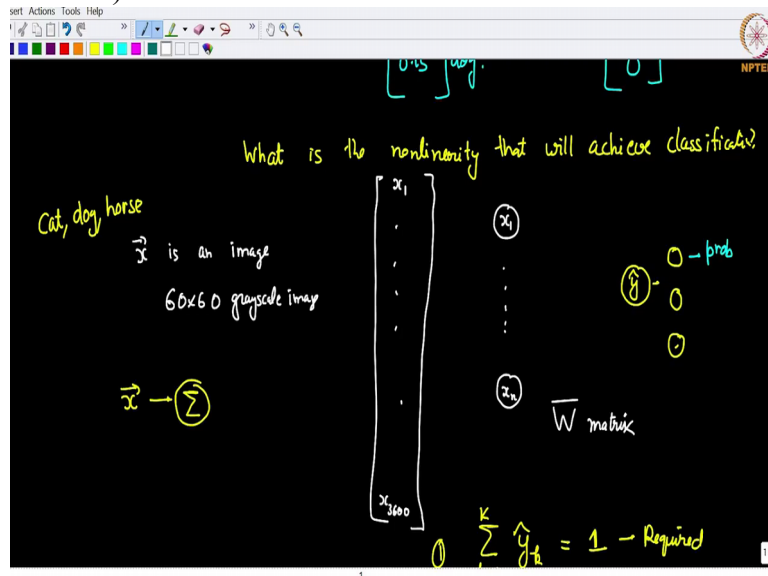 sert Actions Tools Help
NPTEL
[0.15] dog.
[0]
What is the nonlinearity that will achieve
Cat, dog, horse
x⃗ is an image
60x60 grayscale image
x⃗ → Σ
x₁
x₃₆₀₀
x₁
xₙ
ŷ
prob
W̅ matrix
① Σ ŷₖ = 1 — Required
K
1